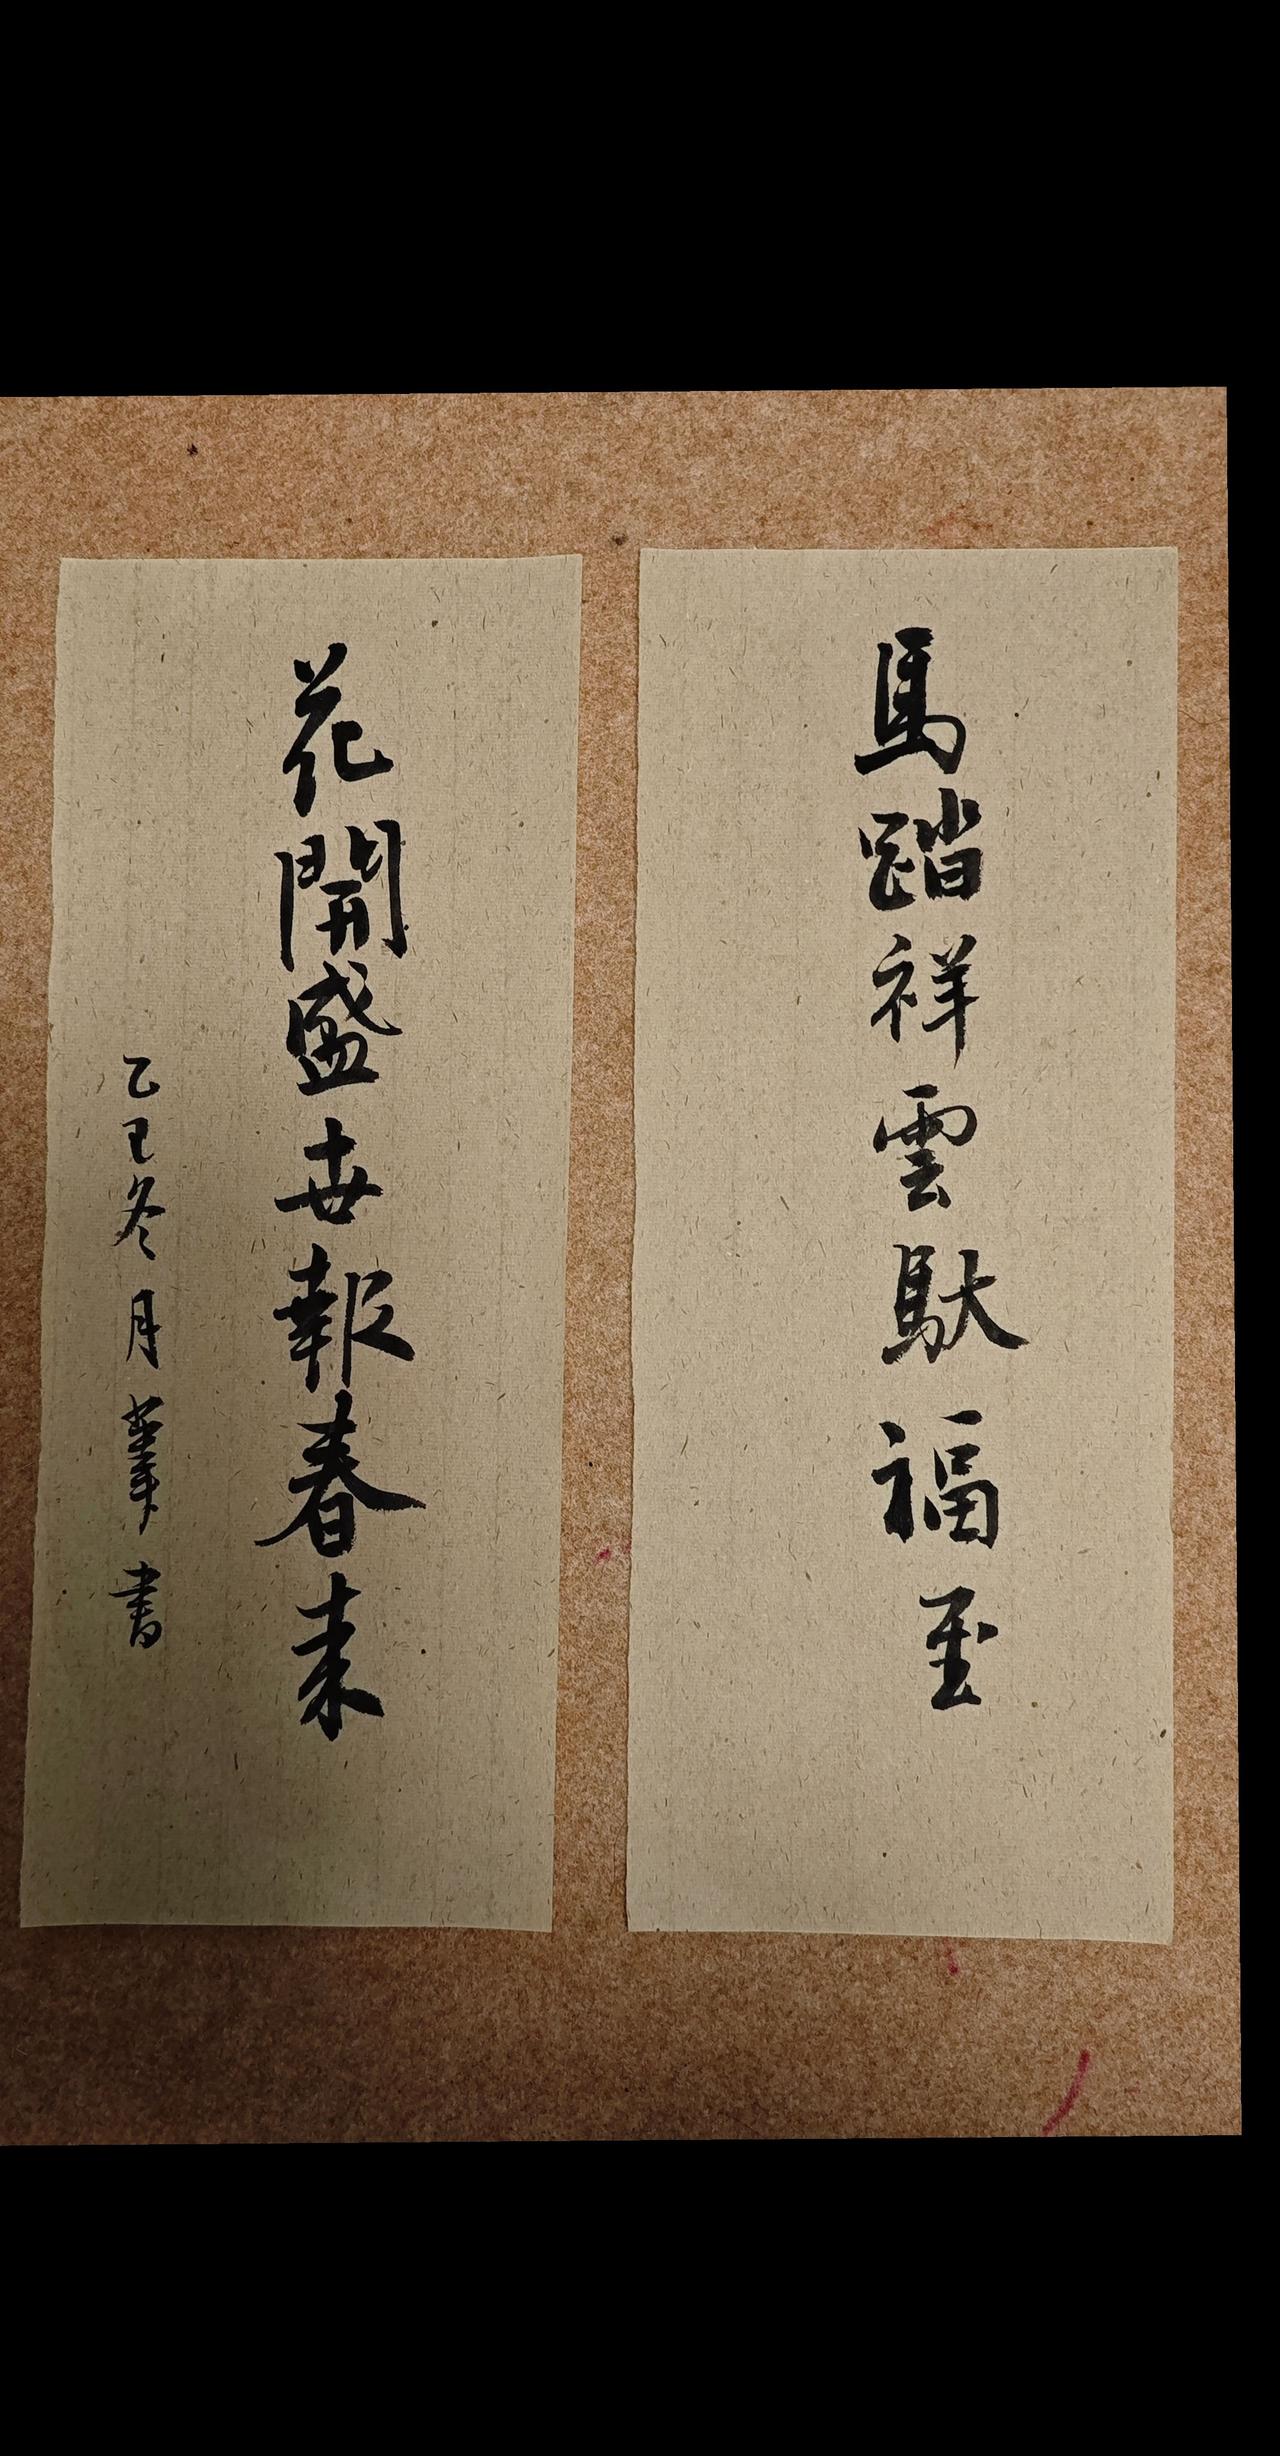 馬踏祥雲馱福至
花開盛世報春来
乙巳冬月肇書